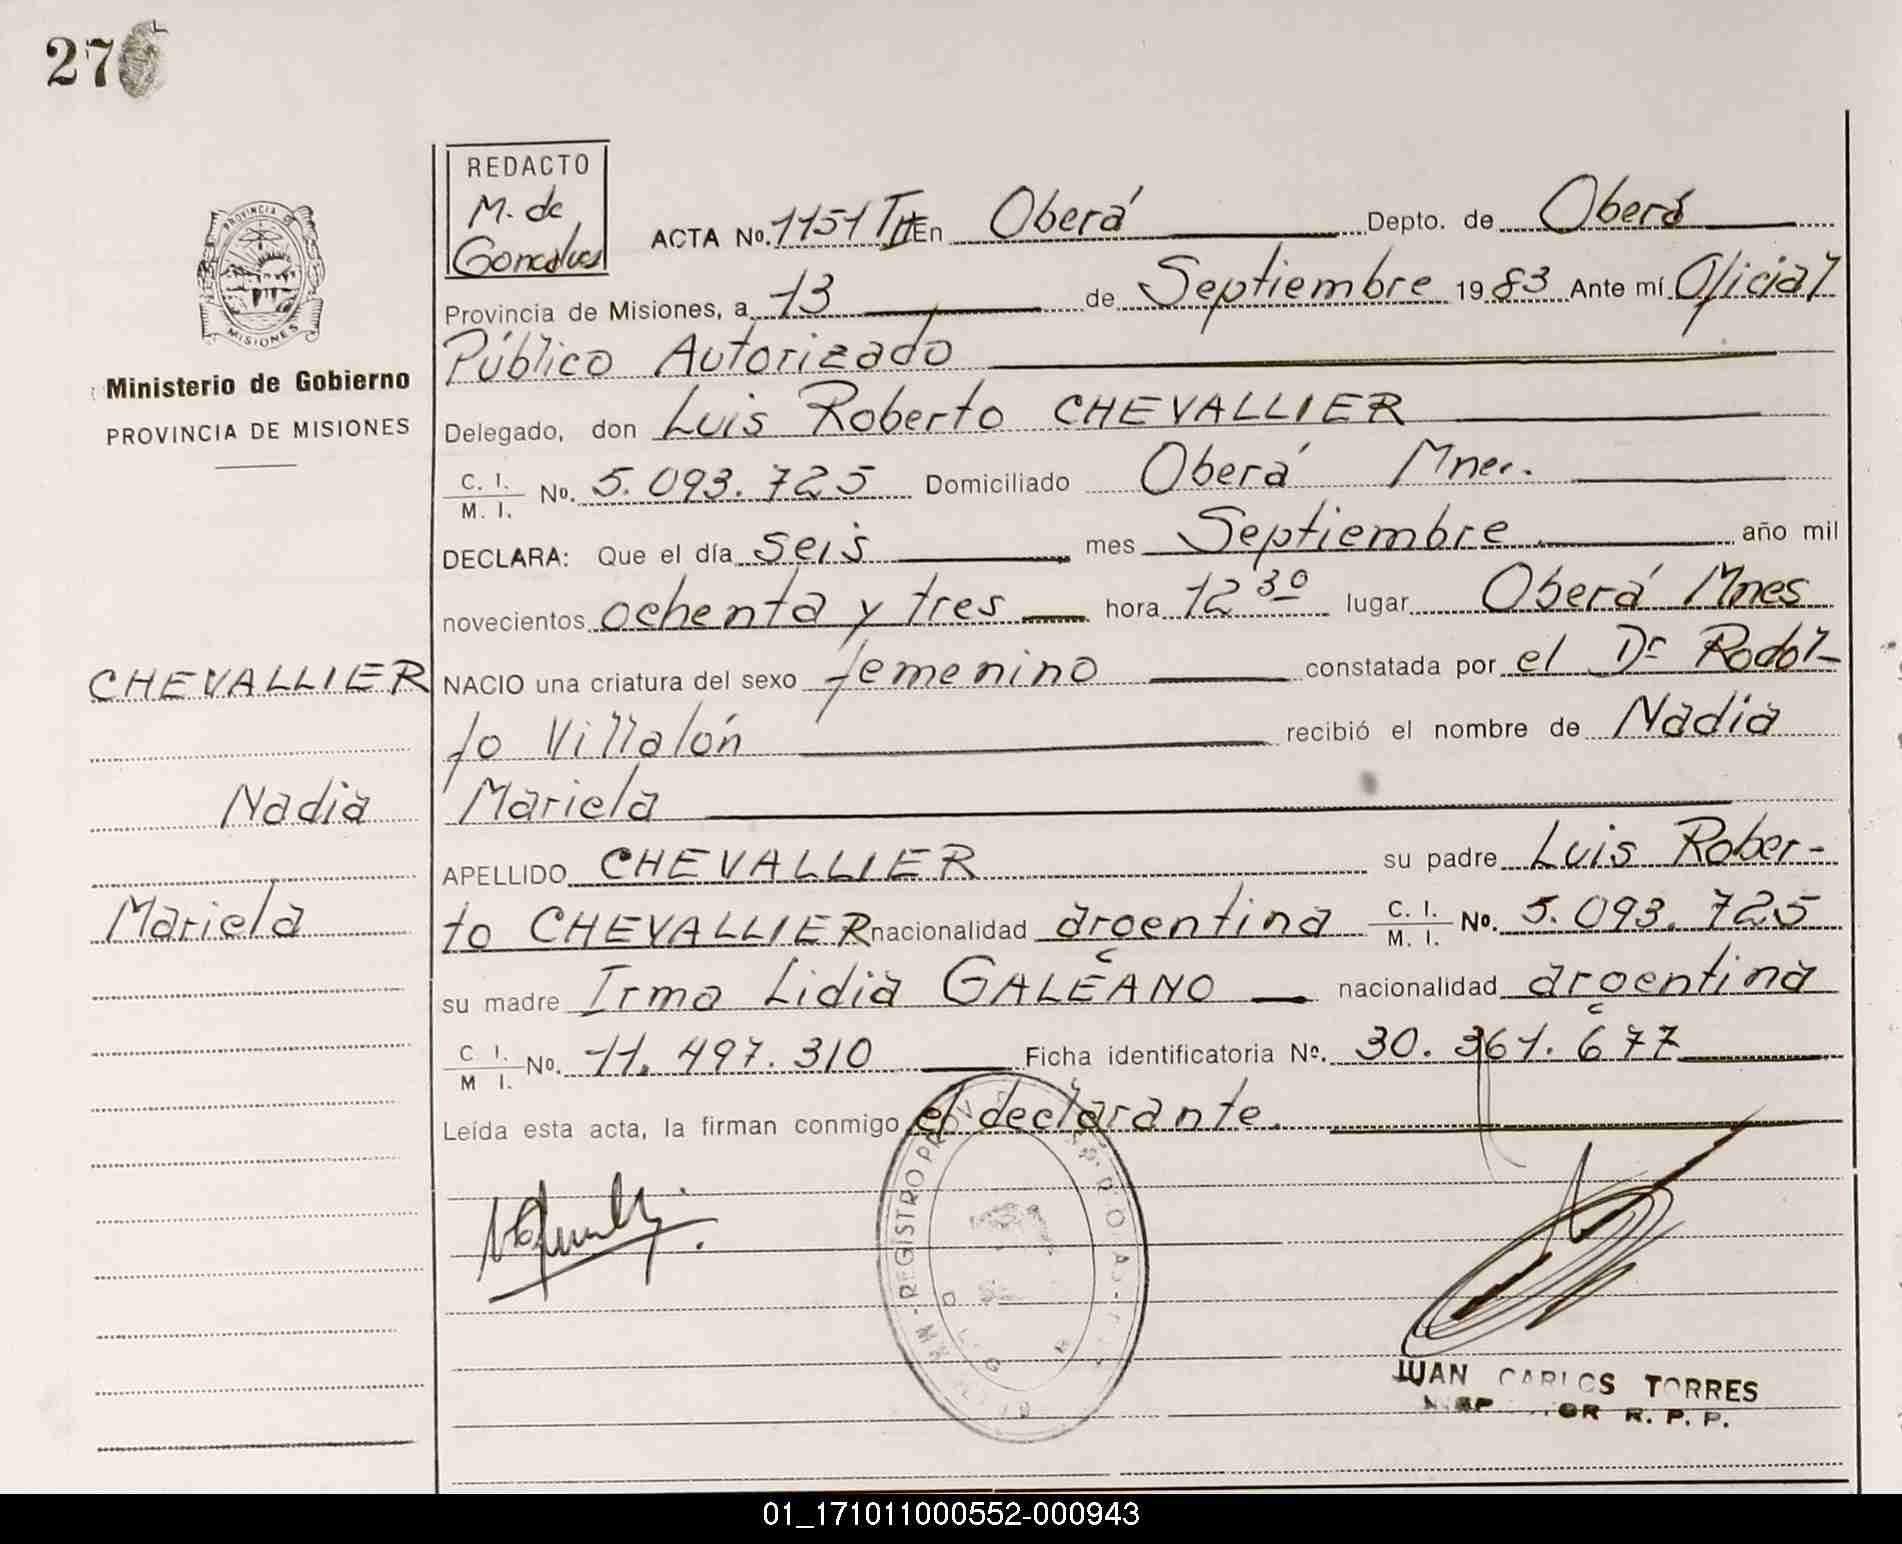 27
REDACTO
M. de
Goncalves
ACTA No. 1151 TII En Oberá Depto. de Oberá
Provincia de Misiones, a 13 de Septiembre 19 83 Ante mí Oficial
Público Autorizado
Delegado, don Luis Roberto CHEVALLIER
C. I.
M. I. No. 5.093.725 Domiciliado Oberá Mnes.
DECLARA: Que el día seis mes Septiembre año mil
novecientos ochenta y tres hora 12 30 lugar Oberá Mnes
NACIO una criatura del sexo femenino constatada por el Dr Rodol-
fo Villalón recibió el nombre de Nadia
Mariela
APELLIDO CHEVALLIER su padre Luis Rober-
to CHEVALLIER nacionalidad argentina C. I. M. I. No. 5.093.725
su madre Irma Lidia GALEANO nacionalidad argentina
C I. M I. No. 11.497.310 Ficha identificatoria No. 30.361.677
Leída esta acta, la firman conmigo el declarante.
PROVINCIA DE
MISIONES
Ministerio de Gobierno
PROVINCIA DE MISIONES
CHEVALLIER
Nadia
Mariela
REGISTRO
JUAN CARLOS TORRES
R. P. P.
01_171011000552-000943